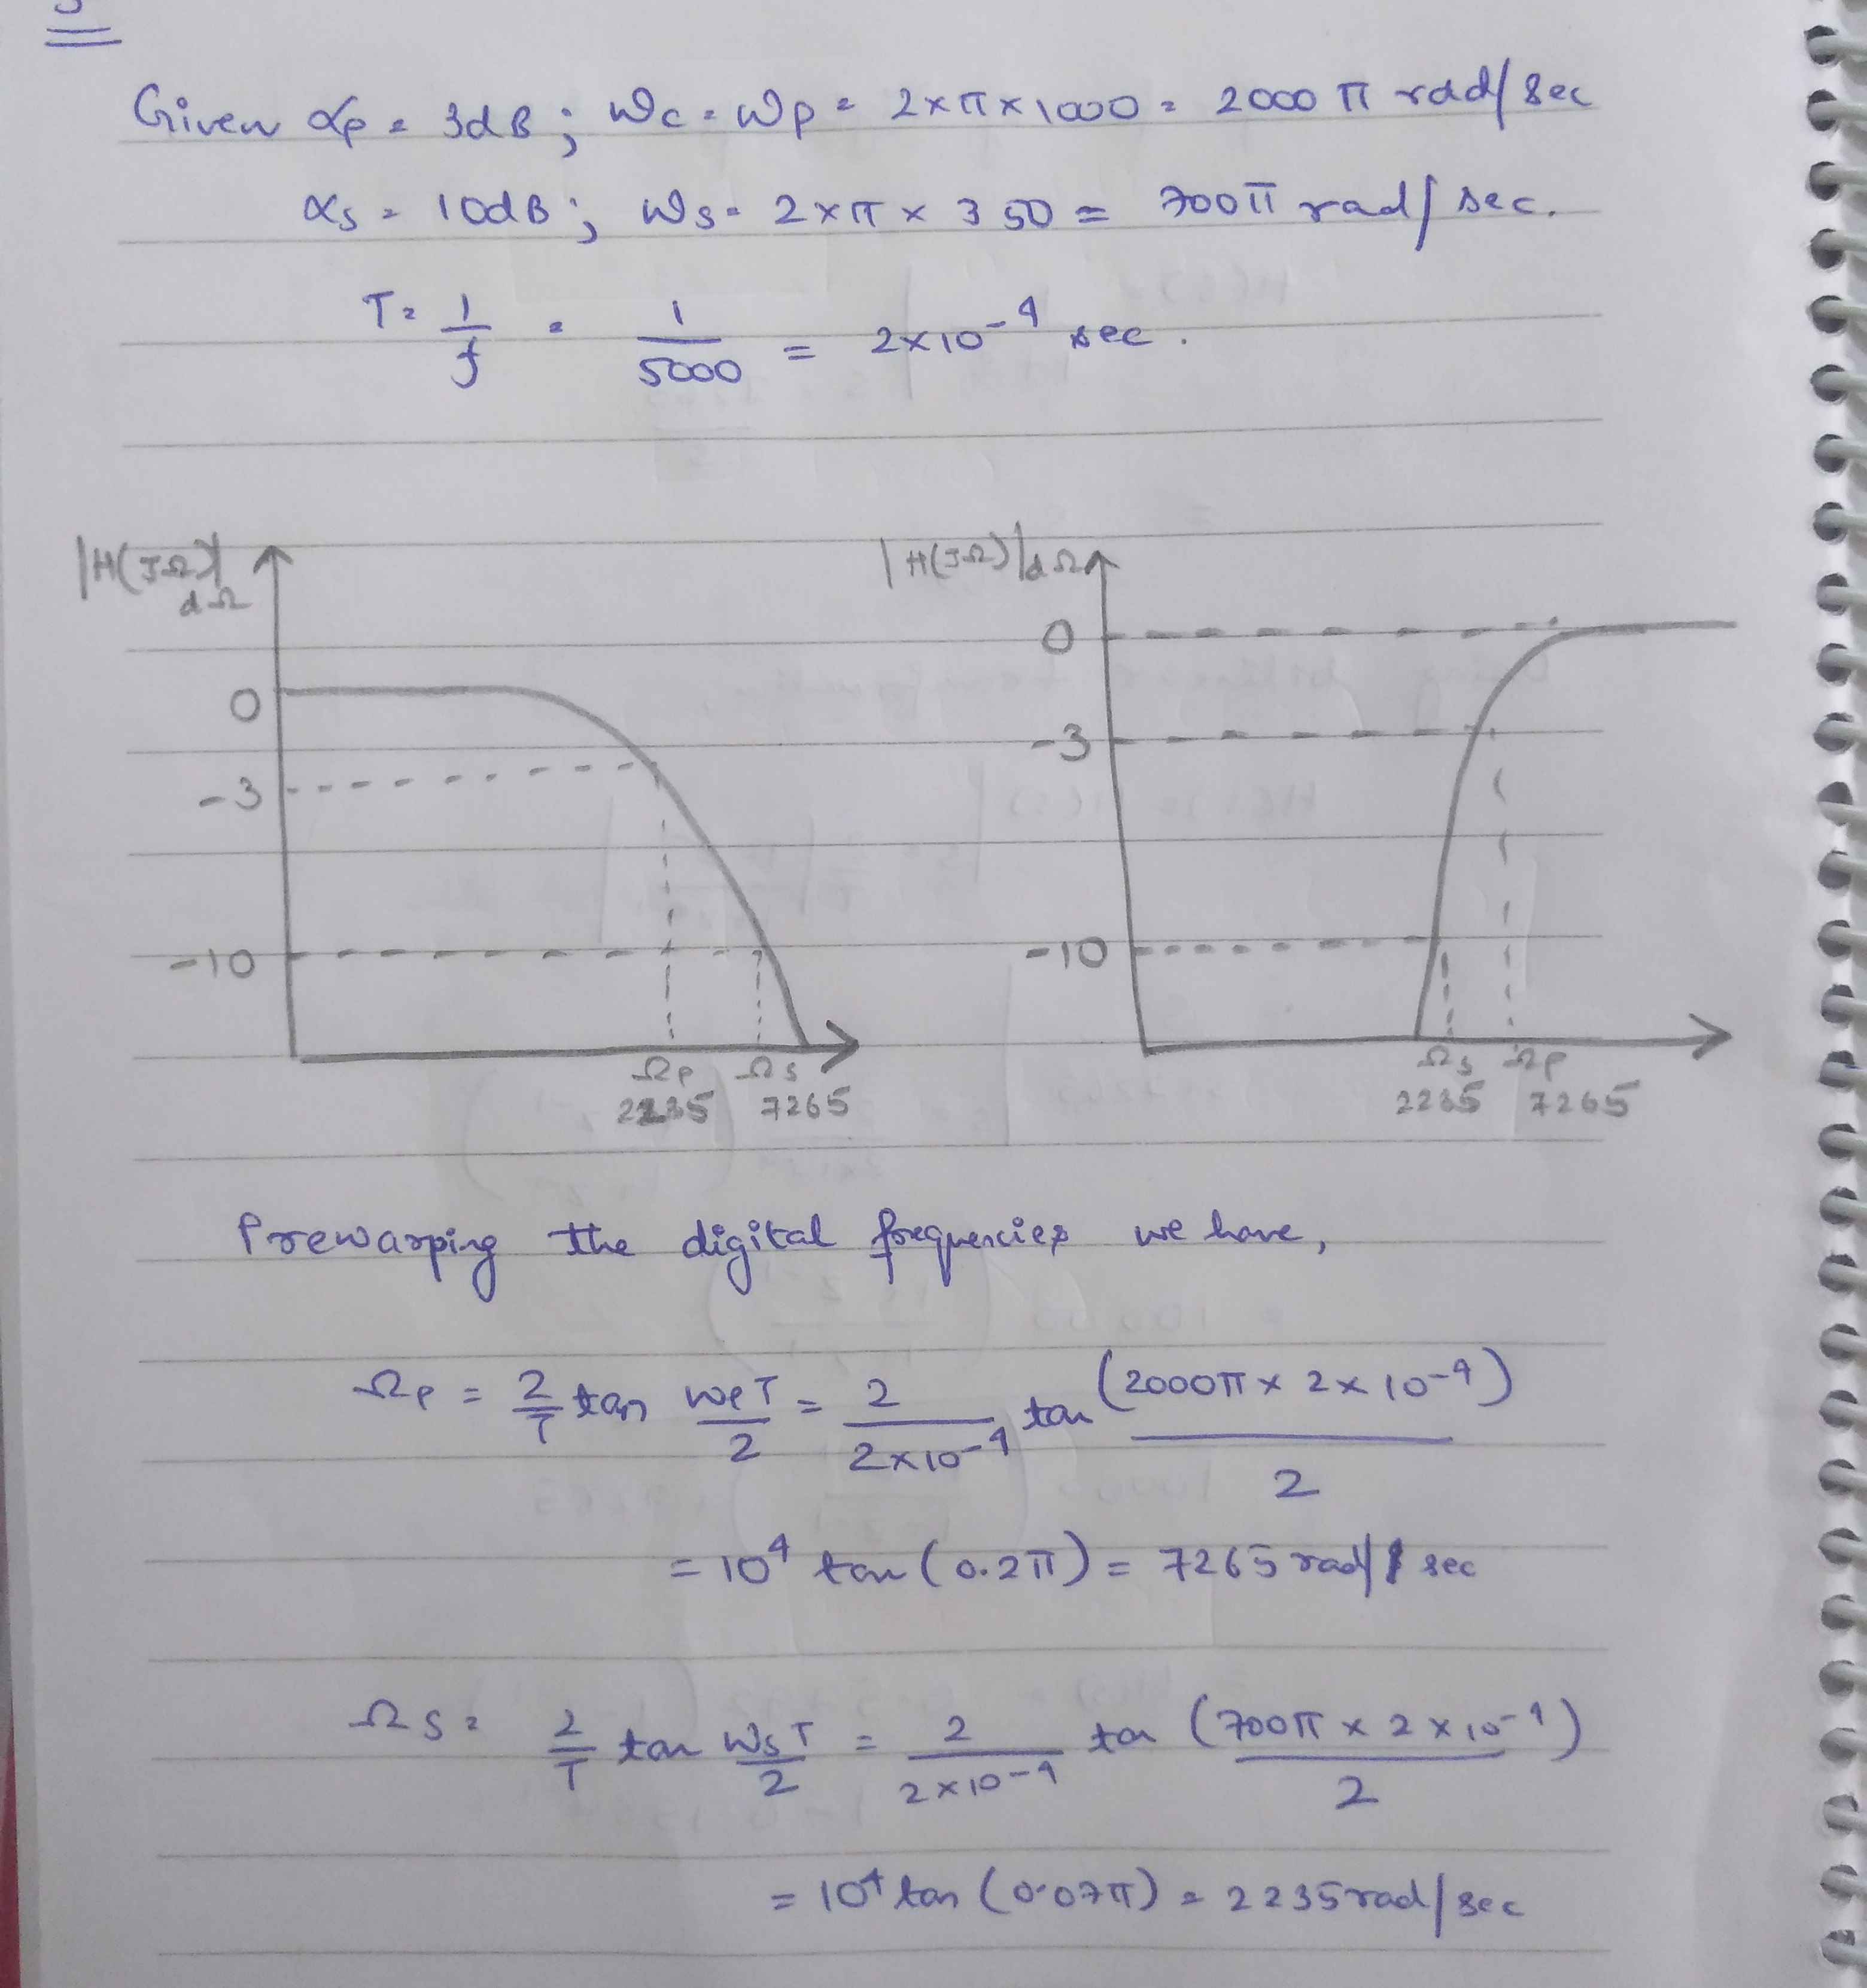 Given αp = 3dB ; ωc = ωp = 2×π×1000 = 2000 π rad/sec
αs = 10dB ; ωs = 2×π×350 = 700π rad/sec.
T = 1/f = 1/5000 = 2×10^-4 sec.
|H(JΩ)| dΩ
0
-3
-10
Ωp Ωs
2235 7265
|H(JΩ)|dΩ
0
-3
-10
Ωs Ωp
2235 7265
Prewarping the digital frequencies we have,
Ωp = 2/T tan ωpT/2 = 2/(2×10^-4) tan (2000π × 2×10^-4)/2
= 10^4 tan (0.2π) = 7265 rad/sec
Ωs = 2/T tan ωsT/2 = 2/(2×10^-4) tan (700π × 2×10^-4)/2
= 10^4 tan (0.07π) = 2235 rad/sec